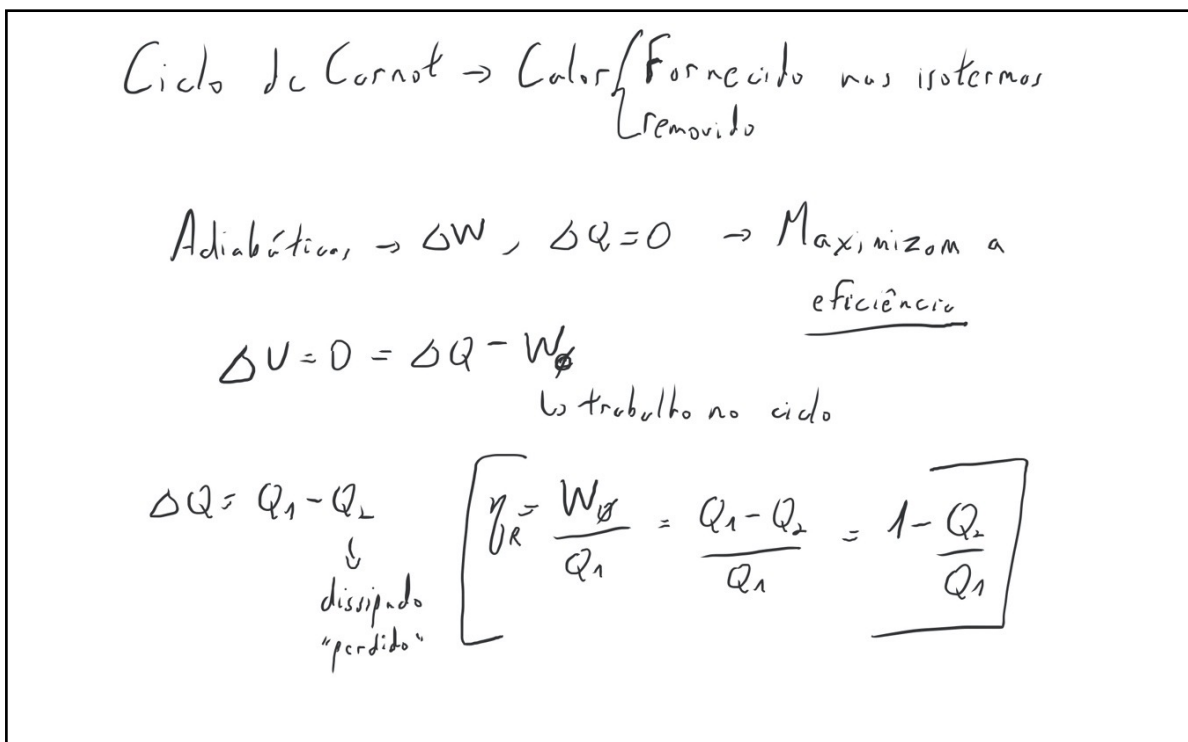 Ciclo de Carnot → Calor { Fornecido nas isotermas
removido
Adiabáticas → ΔW, ΔQ=0 → Maximizam a
eficiência
ΔU = 0 = ΔQ - W∅
↳ trabalho no ciclo
ΔQ = Q₁ - Q₂
↓
dissipado
"perdido"
η_R = W∅/Q₁ = (Q₁ - Q₂)/Q₁ = 1 - Q₂/Q₁